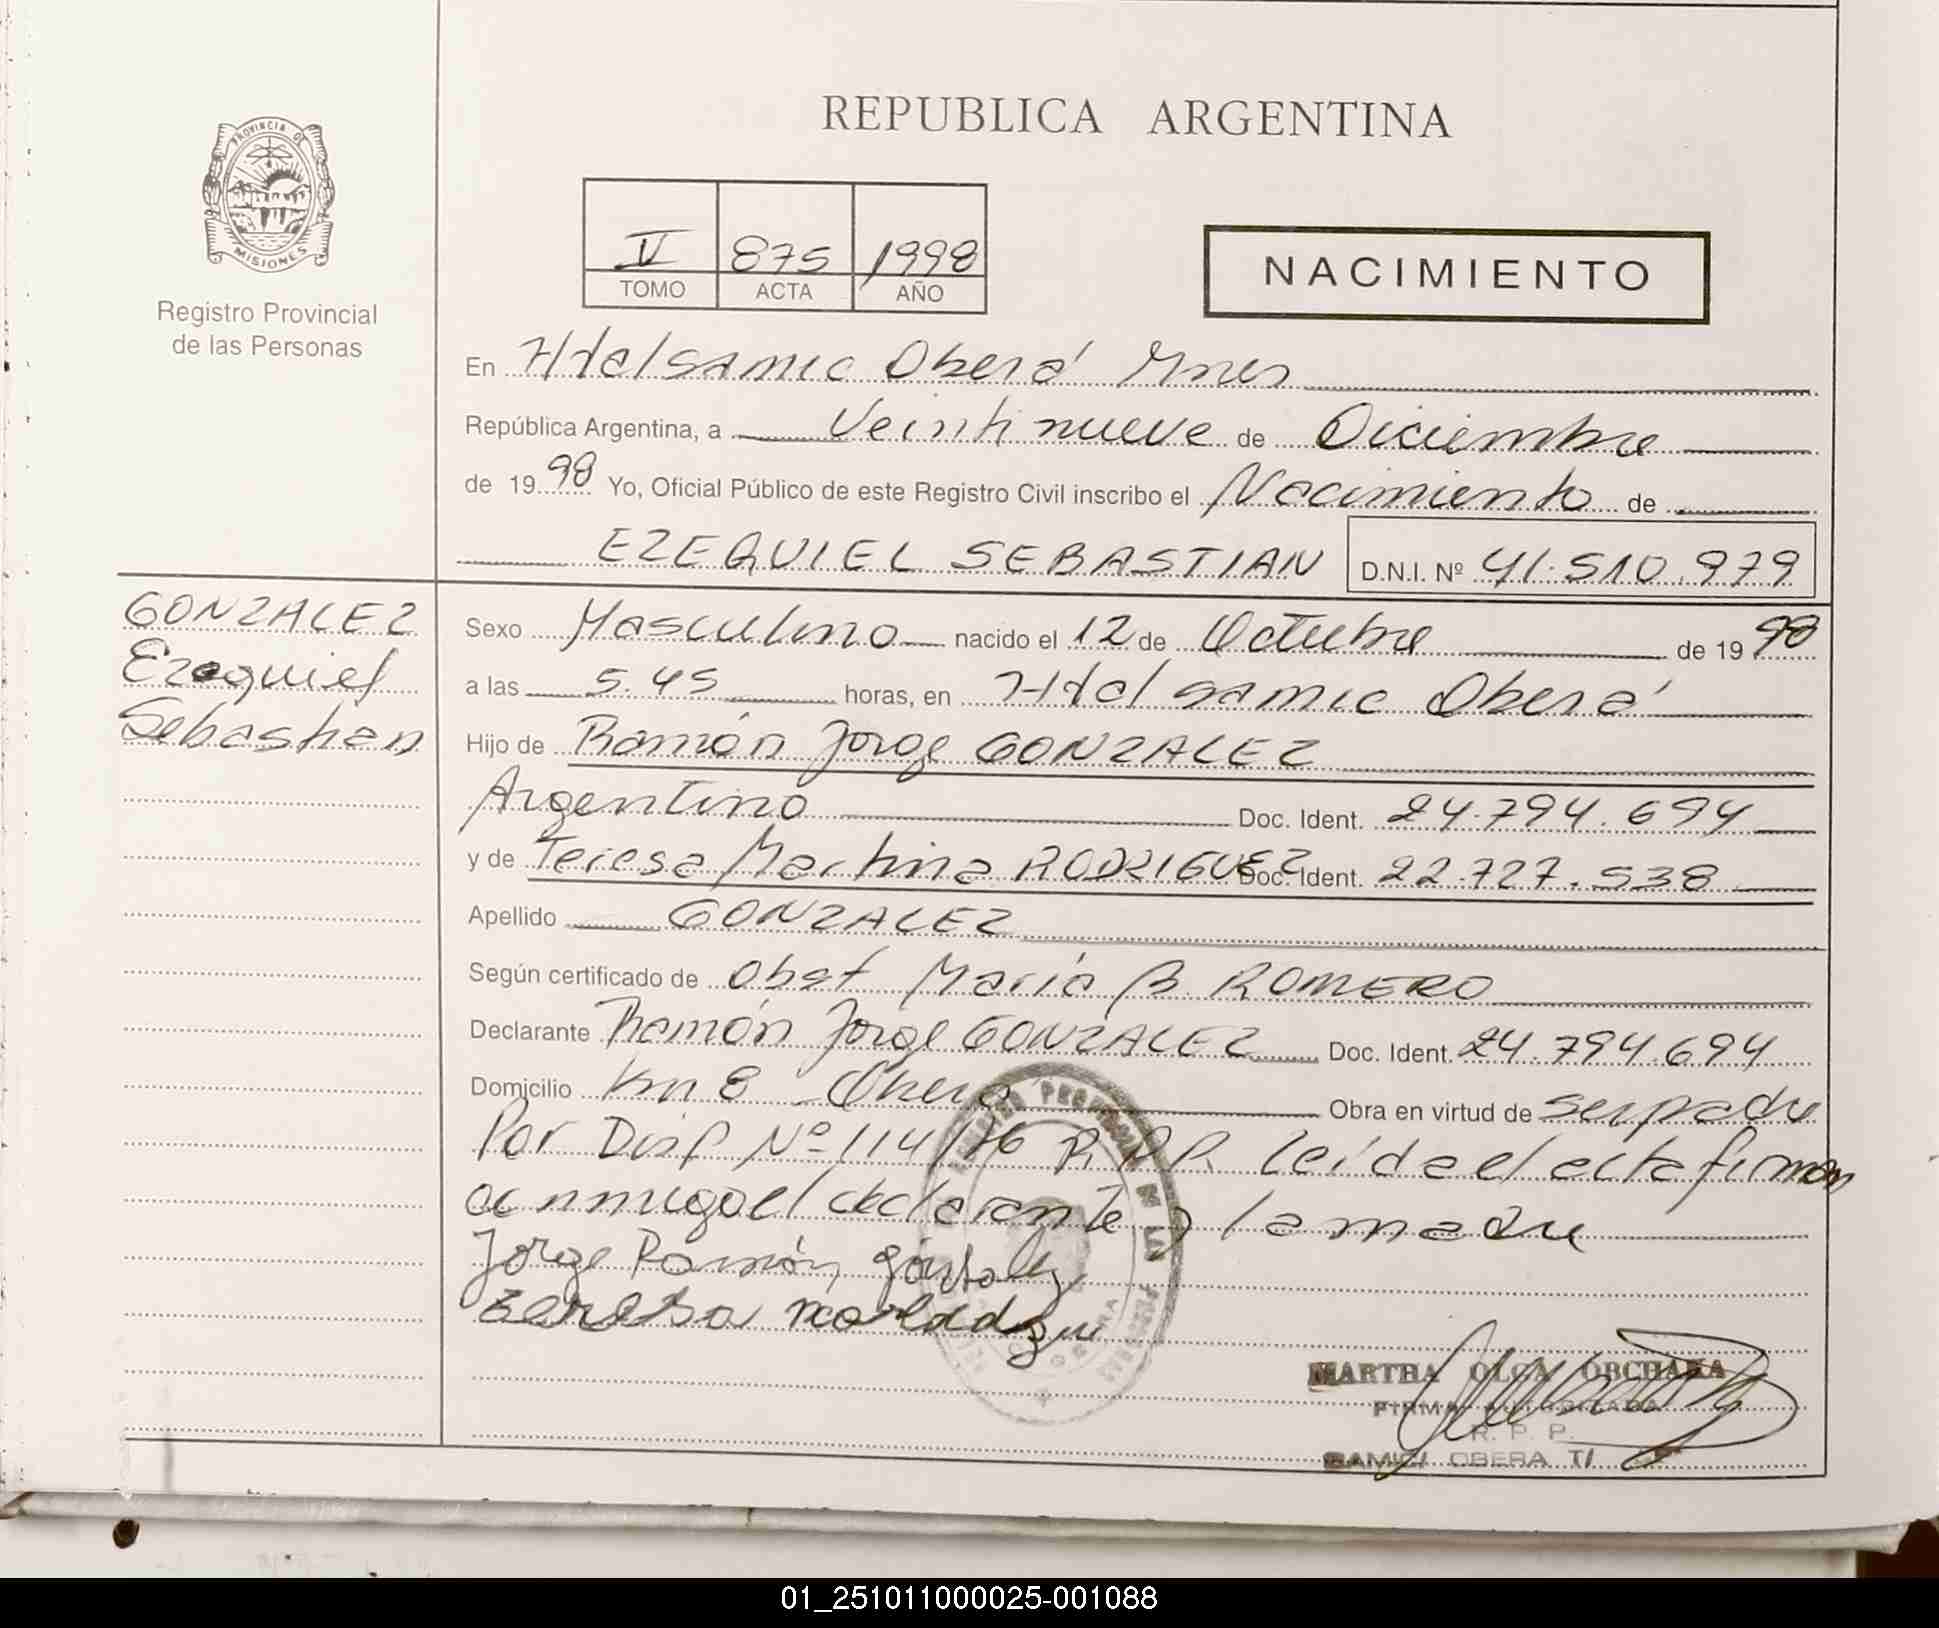 REPUBLICA ARGENTINA
PROVINCIA DE
MISIONES
Registro Provincial
de las Personas
V 875 1998
TOMO ACTA AÑO
NACIMIENTO
En Htal samic Oberá Mnes
República Argentina, a Veintinueve de Diciembre
de 1998 Yo, Oficial Público de este Registro Civil inscribo el Nacimiento de
EZEQUIEL SEBASTIAN D.N.I. Nº 41.510.979
GONZALEZ
Ezequiel
Sebastian
Sexo Masculino nacido el 12 de Octubre de 1998
a las 5.45 horas, en Htal samic Oberá
Hijo de Ramón Jorge GONZALEZ
Argentino Doc. Ident. 24.794.694
y de Teresa Martina RODRIGUEZ Doc. Ident. 22.727.538
Apellido GONZALEZ
Según certificado de Obst María B. ROMERO
Declarante Ramón Jorge GONZALEZ Doc. Ident. 24.794.694
Domicilio Km 8 - Oberá Obra en virtud de ser padre
Por Disp Nº 114/76 R.P.P. leída el acta firman
conmigo el declarante y la madre
Jorge Ramón
MARTHA OLGA
FIRMA AUTORIZADA
R. P. P.
SAMIC/ OBERA T/
01_251011000025-001088